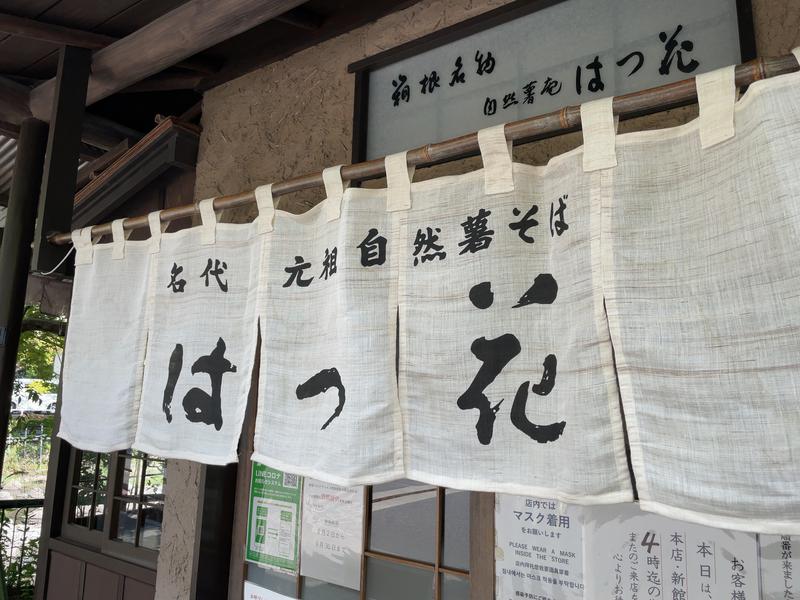 箱根名物
自然薯庵 はつ花
名代 元祖 自然薯そば
はつ花
LINEコロナ
お知らせシステム
店内では
マスク着用
をお願いします
PLEASE WEAR A MASK
INSIDE THE STORE
お客様
本日は、
本店・新館
4時迄の
またのご来店を
心よりお
順番が来ました